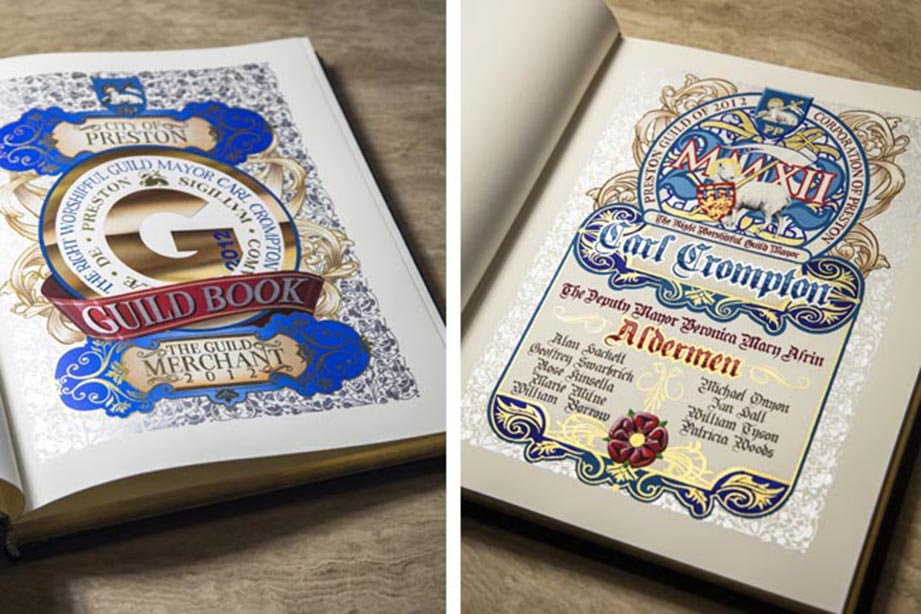 CITY OF
PRESTON
THE RIGHT WORSHIPFUL GUILD MAYOR CARL CROMPTON
DE • PRESTON
SIGILLVM
G
2012
GUILD BOOK
THE GUILD
MERCHANT
2012
PRESTON GUILD OF 2012
CORPORATION OF PRESTON
PP
MMXII
The Right Worshipful Guild Mayor
Carl Crompton
The Deputy Mayor Veronica Mary Afrin
Aldermen
Alan Hackett
Geoffrey Swarbrich
Rose Kinsella
Marie Milne
William Borrow
Michael Onyon
Ian Hall
William Tyson
Patricia Woods